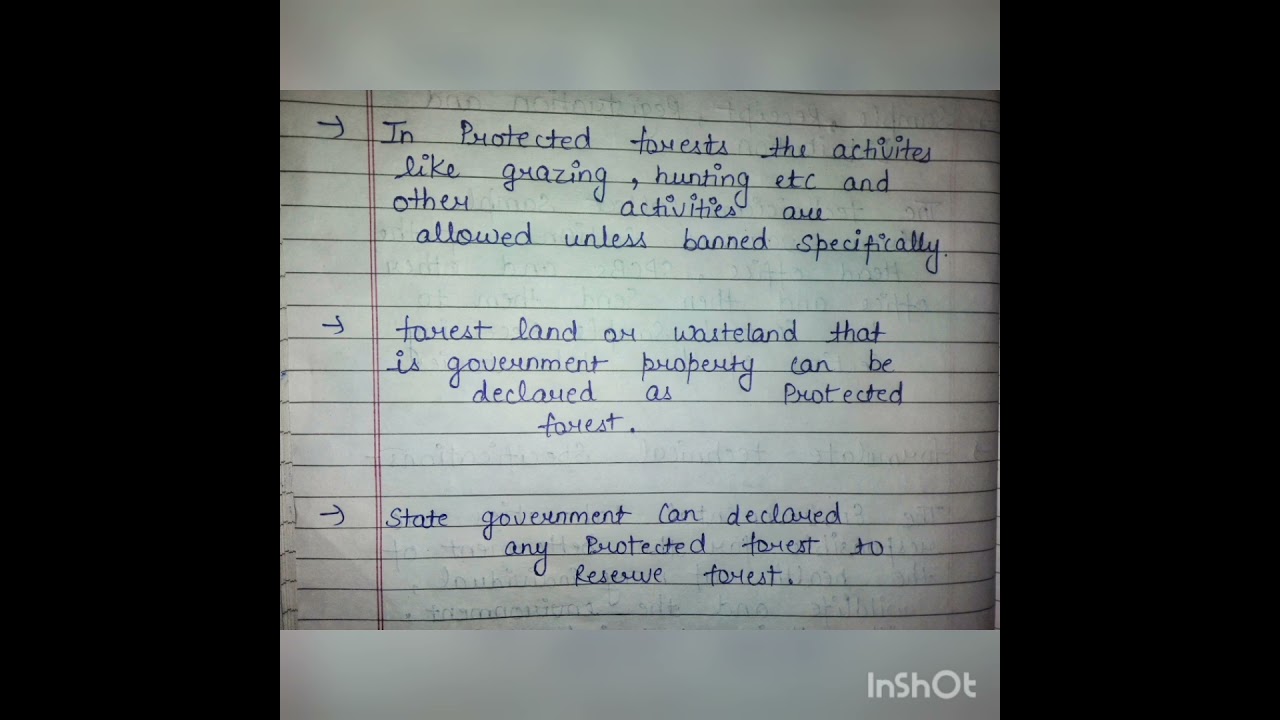 → In Protected forests the activites
like grazing, hunting etc and
other activities are
allowed unless banned specifically.
→ forest land or wasteland that
is government property can be
declared as Protected
forest.
→ State government can declared
any Protected forest to
Reserve forest.
InShOt